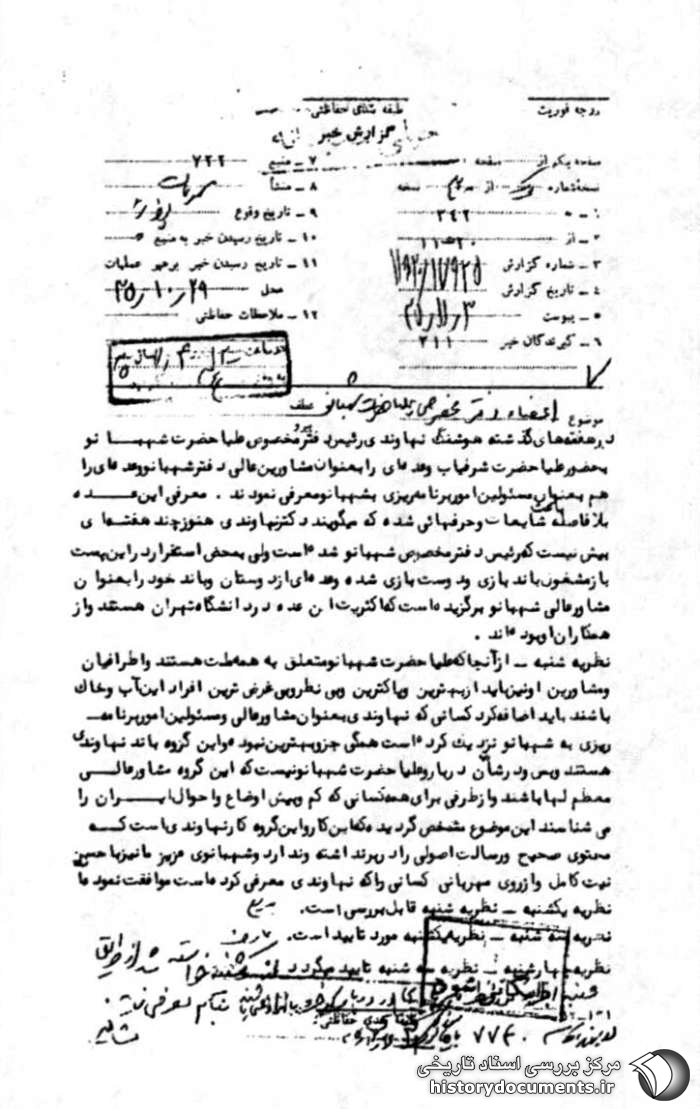 درجه فوریت
طبقه بندی حفاظتی
گزارش خبر
صفحه یکم از صفحه
نسخه شماره از نسخه
۱ - به ۳۴۲
۲ - از
۳ - شماره گزارش
۴ - تاریخ گزارش
۵ - پیوست
۶ - گیرندگان خبر ۳۱۱
۷ - منبع ۷۲۲
۸ - منشأ
۹ - تاریخ وقوع
۱۰ - تاریخ رسیدن خبر به منبع
۱۱ - تاریخ رسیدن خبر برهبر عملیات
محل ۲۵٫۱۰٫۲۹
۱۲ - ملاحظات حفاظتی
موضوع اعضاء دفتر مخصوص علیاحضرت شهبانو
در هفته های گذشته هوشنگ نهاوندی رئیس دفتر مخصوص علیا حضرت شهبانو
بحضور علیا حضرت شرفیاب وعده ای را بعنوان مشاورین عالی دفتر شهبانو وعده ای را
هم بعنوان مسئولین امور برنامه ریزی بشهبانو معرفی نمودند . معرفی این عده
بلافاصله باعث شایعات و حرفهائی شده که میگویند دکتر نهاوندی هنوز چند هفته ای
بیش نیست که رئیس دفتر مخصوص شهبانو شده است ولی بمحض استقرار در این پست
باز مشغول باند بازی و دوست بازی شده وعده ای از دوستان وباند خود را بعنوان
مشاور عالی شهبانو برگزیده است که اکثریت این عده در دانشگاه تهران هستند و از
همکاران او بوده اند .
نظریه شنبه - از آنجا که علیا حضرت شهبانو متعلق به همه ملت هستند و اطرافیان
ومشاورین او نیز باید از بهترین وپاکترین وبی نظر وبی غرض ترین افراد این آب وخاک
باشند باید اضافه کرد کسانی که نهاوندی بعنوان مشاور عالی ومسئولین امور برنامه
ریزی به شهبانو نزدیک کرده است همگی جزو بهترین نبوده واین گروه باند نهاوندی
هستند وبس ودر شأن دربار وعلیا حضرت شهبانو نیست که این گروه مشاور عالی
معظم لها باشند واز طرفی برای همه کسانی که کم وبیش اوضاع واحوال ایران را
می شناسند این موضوع مشخص گردیده که این کار واین گروه کار نهاوندی است که
محتوی صحیح ورسالت اصولی را دربرنداشته وندارد وشهبانوی عزیز ما نیز با حسن
نیت کامل وازروی مهربانی کسانی راکه نهاوندی معرفی کرده است موافقت نموده اند
نظریه یکشنبه - نظریه شنبه قابل بررسی است.
نظریه سه شنبه - نظریه یکشنبه مورد تایید است.
نظریه چهارشنبه - نظریه سه شنبه تایید میگردد
طبقه بندی حفاظتی
مرکز بررسی اسناد تاریخی
historydocuments.ir